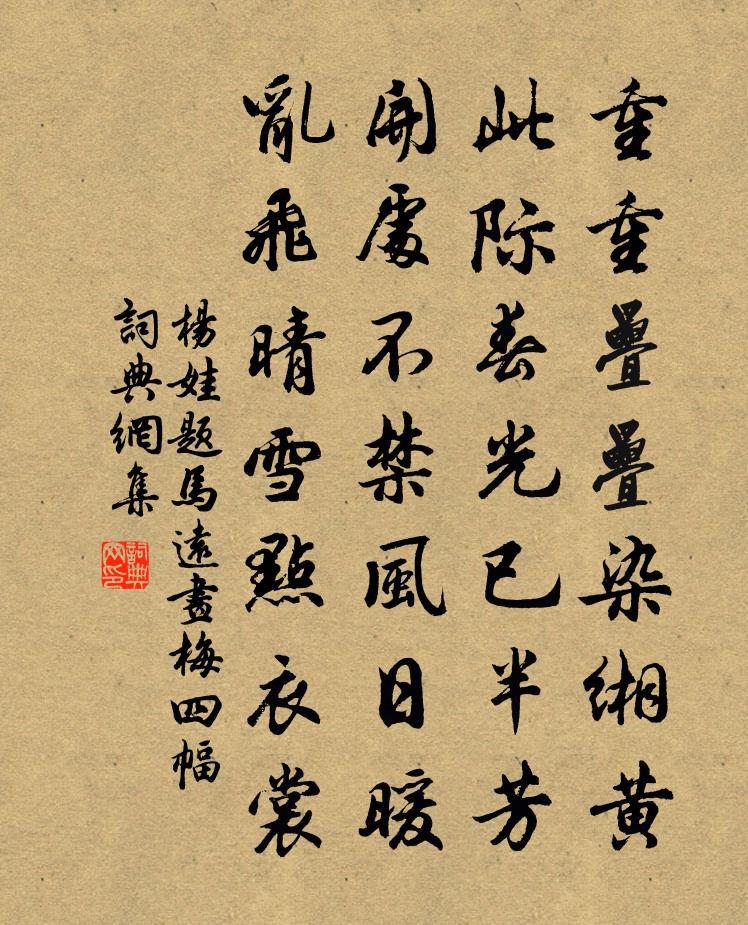 重重疊疊染緗黃
此际春光已半芳
開處不禁風日暖
亂飛晴雪點衣裳
楊娃題馬遠畫梅四幅
詞典網集
詞典网印